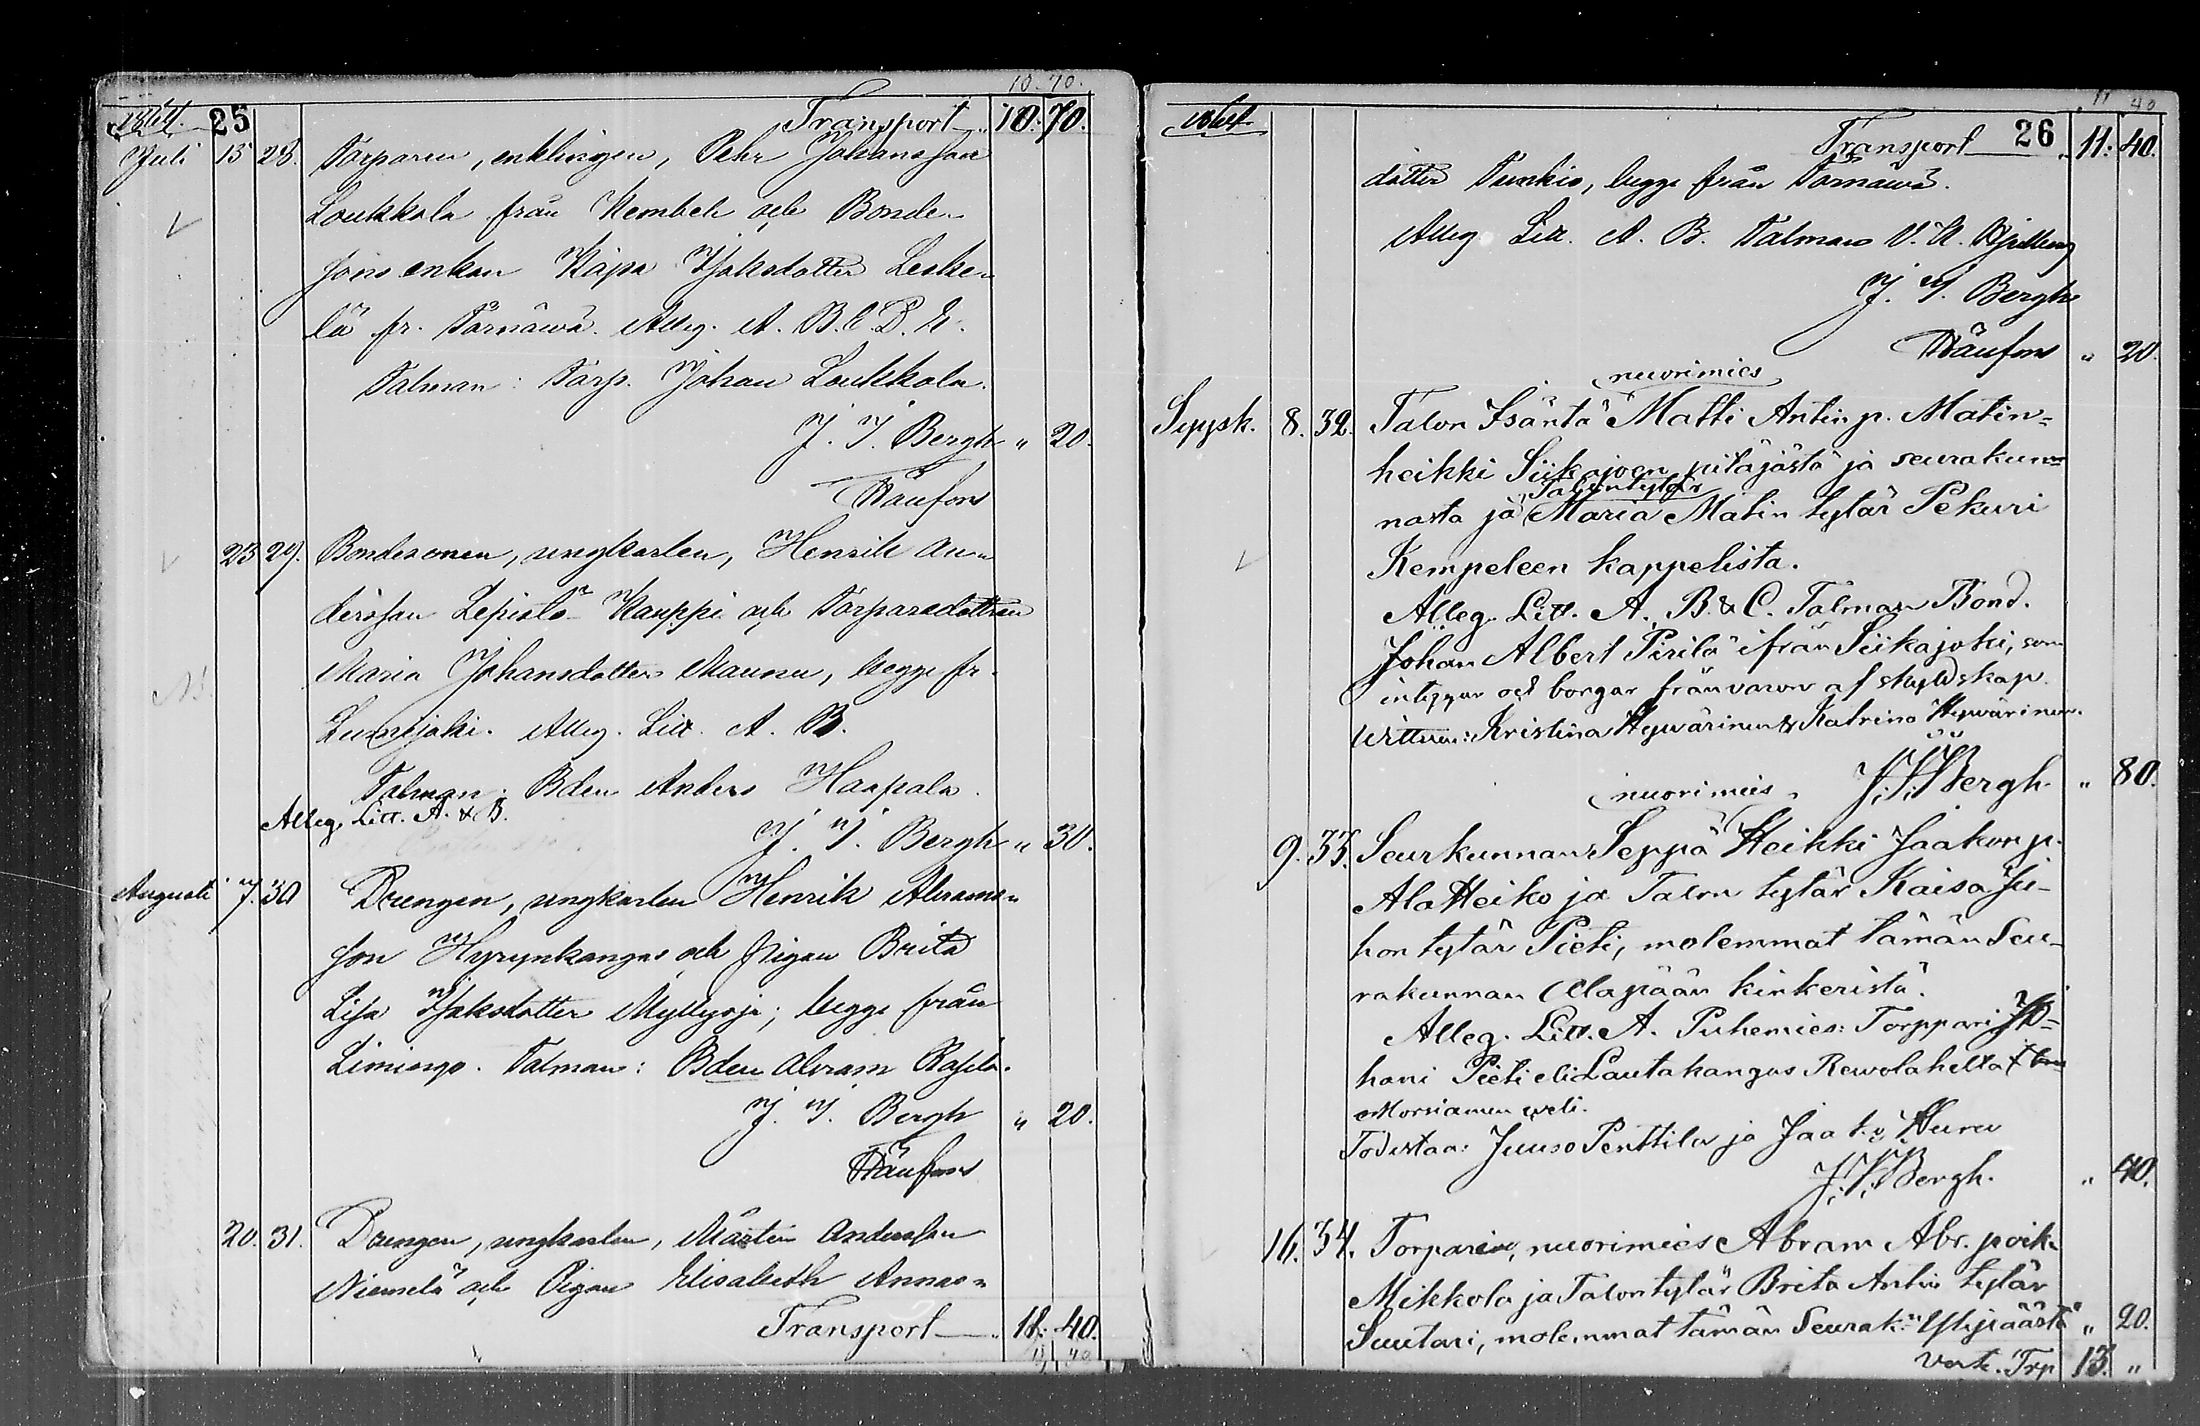 10. 70.
1864. 25 Transport " 10: 70.
Juli 15 28. Torparen, enklingen, Pehr Johansson
Loukkola från Kembele och Bonde-
sons enkan Kajsa Isaksdotter Leske-
lä fr. Tornåwå. Alleg. A. B. C. D. E.
Talman: Torp. Johan Loukkola.
J. V. Bergh " 20.
23 29. Bondesonen, ungkarlen, Henrik An-
dersson Lepistö-Kauppi och Torparedottren
Maria Johansdotter Maunu, begge fr.
Lumijoki. Alleg. Litt. A. B.
Talman: Bden Anders Haapala.
Alleg. Litt. A. & B.
J. V. Bergh " 30.
Augusti 7. 30 Drengen, ungkarlen Henrik Abrams-
son Hyrynkangas och Pigan Brita
Lisa Isaksdotter Myllyoja; begge från
Limingo. Talman: Bden Abram
J. V. Bergh " 20.
20. 31. Drengen, ungkarlen, Mårten Andersson
Niemelä och Pigan Elisabeth Annas-
Transport " 11. 40.
11 40
11 40
1864 Transport 26 " 11: 40.
dotter Tunkio, begge från Tornåwå.
Alleg. Litt. A. B. Talman V. A.
J. V. Bergh
" 20.
nuorimies
Syysk. 8. 32. Talon Isäntä Matti Antin p. Matin-
heikki Siikajoen pitäjästä ja seurakun-
Talontytär
nasta ja Maria Matin tytär Pekuri
Kempeleen kappelista.
Alleg. Litt. A. B. & C. Talman Bond.
Johan Albert Pirilä ifrån Siikajoki, som
intygar och borgar frånvaron af skyldskap.
Wittnen: Kristina Hywärinen & Katrina Hywärinen.
nuorimies J. V. Bergh. " 80.
9. 33. Seurkunnan Seppä Heikki Jaakon p.
AlaHeiko ja Talon tytär Kaisa Ju-
hon tytär Pieti, molemmat tämän Seu-
rakunnan Alapään kinkeristä.
Alleg. Litt. A. Puhemies: Torppari Jo-
hani Pieti eli Lautakangas Rewolahelta
Morsiamen weli.
Todistaa: Juuso Penttila ja Jaako Huru
J. V. Bergh. " 40.
16. 34. Torpari, nuorimies Abram Abr. poik.
Mikkola ja Talontytär Brita Antin tytär
Suutari, molemmat tämän Seurak:n Ylipäästä " 20.
Trp 13. "